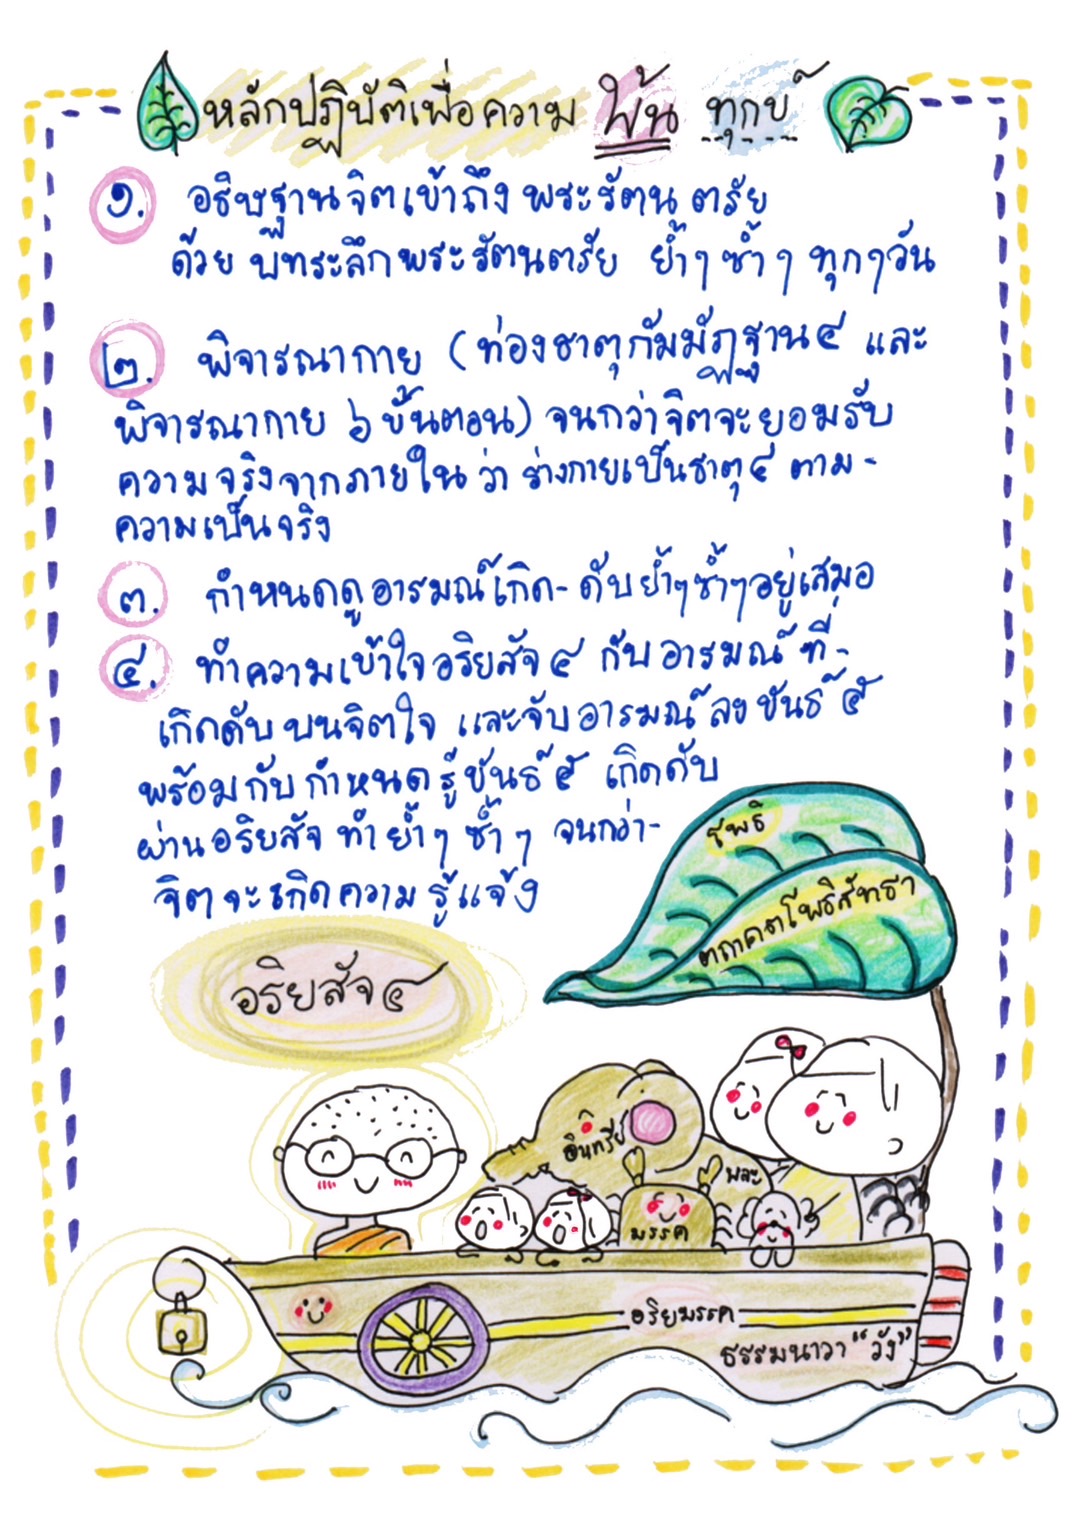 หลักปฏิบัติเพื่อความ พ้น ทุกข์
๑. อธิษฐานจิตเข้าถึง พระรัตนตรัย
ด้วย บทระลึกพระรัตนตรัย ย้ำๆ ซ้ำๆ ทุกๆวัน
๒. พิจารณากาย (ท่องธาตุกัมมัฏฐาน๔ และ
พิจารณากาย ๖ ขั้นตอน) จนกว่าจิตจะยอมรับ
ความจริงจากภายใน ว่า ร่างกายเป็นธาตุ๔ ตาม-
ความเป็นจริง
๓. กำหนดดูอารมณ์เกิด-ดับย้ำๆซ้ำๆอยู่เสมอ
๔. ทำความเข้าใจอริยสัจ๔ กับอารมณ์ ที่-
เกิดดับ บนจิตใจ และจับอารมณ์ลงขันธ์ ๕
พร้อมกับกำหนดรู้ขันธ์ ๕ เกิดดับ
ผ่านอริยสัจ ทำย้ำๆ ซ้ำๆ จนกว่า-
จิตจะเกิดความรู้แจ้ง
โพธิ
ตถาคตโพธิสัทธา
อริยสัจ ๔
อินทรีย์
พละ
มรรค
อริยมรรค
ธรรมนาวา "วัง"